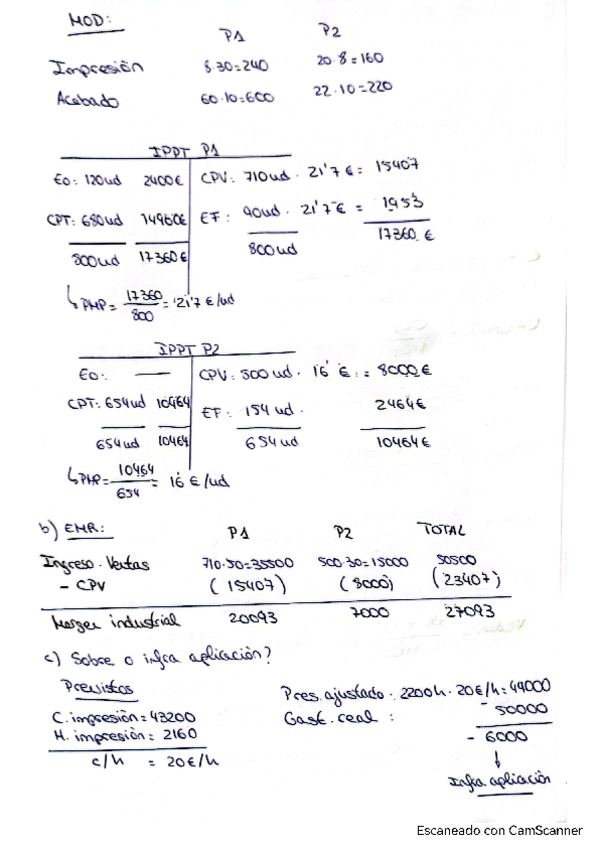 MOD:
P1 P2
Impresión 8·30=240 20·8=160
Acabado 60·10=600 22·10=220
IPPT P1
Eo: 120ud 2400€ CPV: 710ud · 21'7€ = 15407
CPT: 680ud 14960€ EF: 90ud · 21'7€ = 1953
800ud 17360€ 800ud 17360€
↳ PMP = 17360/800 = 21'7€/ud
IPPT P2
Eo: — CPV: 500ud · 16€ = 8000€
CPT: 654ud 10464 EF: 154ud · 2464€
654ud 10464 654ud 10464€
↳ PMP = 10464/654 = 16€/ud
b) EMR: P1 P2 TOTAL
Ingreso. Ventas 710·50=35500 500·30=15000 50500
- CPV (15407) (8000) (23407)
Margen industrial 20093 7000 27093
c) Sobre o infra apliación?
Previstos
Pres. ajustado: 2200h · 20€/h = 44000
C. impresión = 43200
Gast. real: - 50000
H. impresión = 2160
- 6000
c/h = 20€/h
↓
Infra apliación
Escaneado con CamScanner